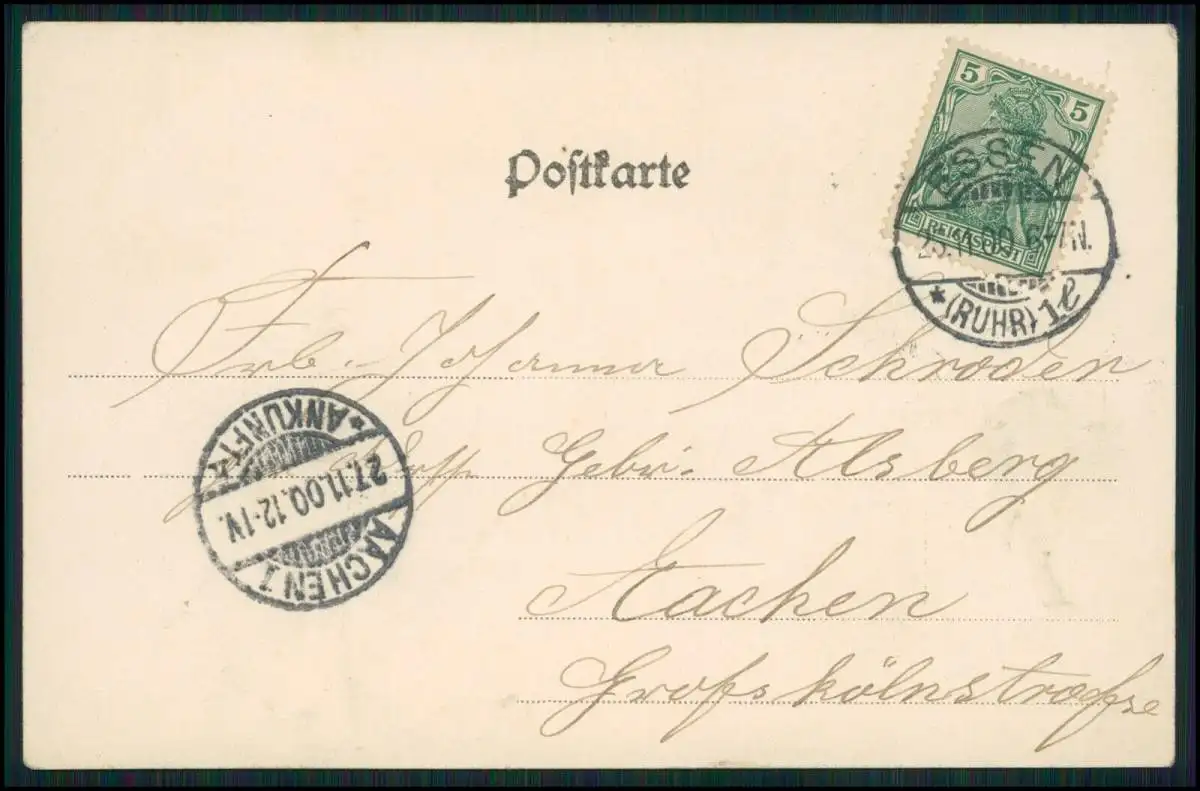 Postkarte
5 5
REICHSPOST
ESSEN
11.00 6-7N.
* (RUHR) 1e
Frl. Johanna Schroden
Gebr. Alsberg
Aachen
Großkölnstraße
* ANKUNFT *
27.11.00.12-1V.
AACHEN 1